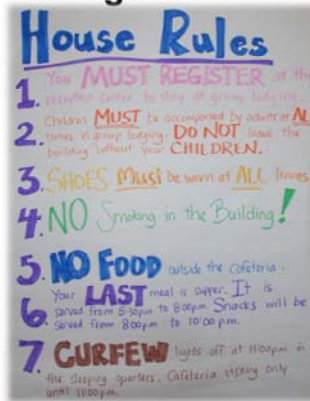 House Rules
1. You MUST REGISTER at the
reception centre to stay at group lodging.
2. Children MUST be accompanied by adults at AL
times in group lodging. DO NOT leave the
building without your CHILDREN.
3. SHOES Must be worn at ALL times
4. NO Smoking in the Building!
5. NO FOOD outside the Cafeteria.
6. Your LAST meal is supper. It is
served from 5:30pm to 8:00pm. Snacks will be
served from 8:00pm to 10:00 pm.
7. CURFEW lights off at 11:00pm in
the sleeping quarters. Cafeteria visiting only
until 11:00pm.